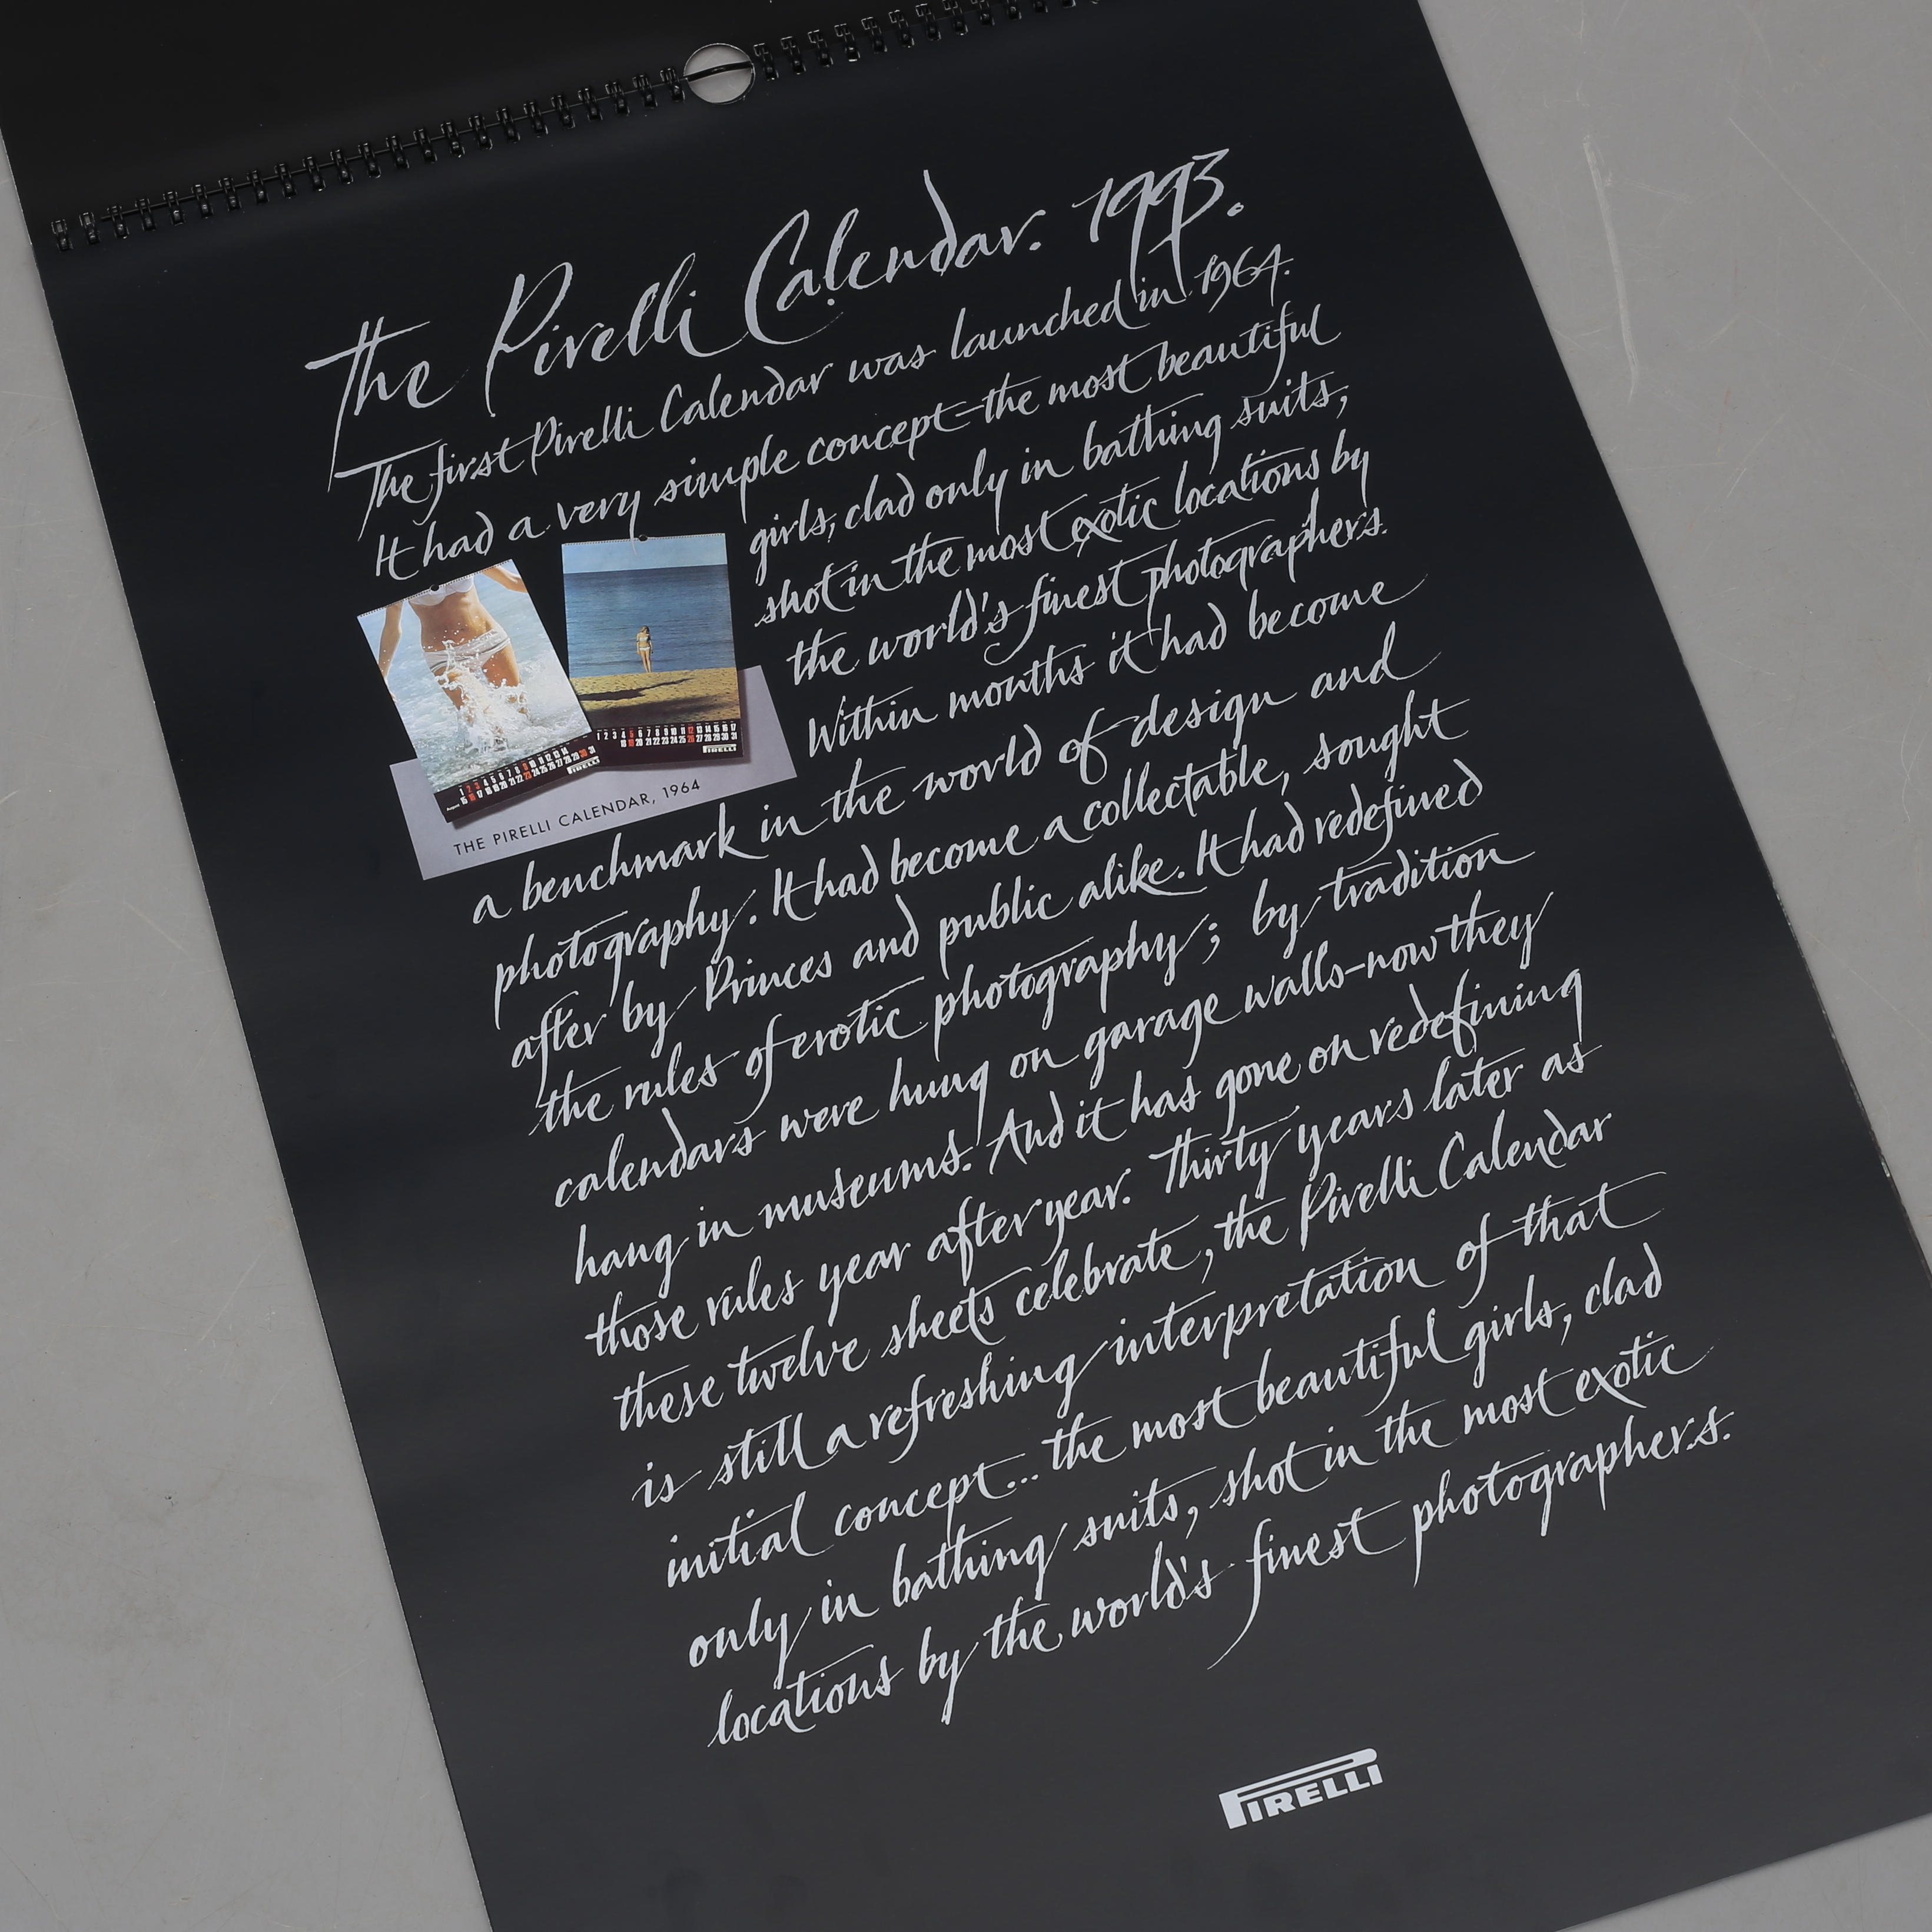 The Pirelli Calendar. 1993.
The first Pirelli Calendar was launched in 1964.
It had a very simple concept–the most beautiful
girls, clad only in bathing suits,
shot in the most exotic locations by
the world's finest photographers.
Within months it had become
THE PIRELLI CALENDAR, 1964
a benchmark in the world of design and
photography. It had become a collectable, sought
after by Princes and public alike. It had redefined
the rules of erotic photography; by tradition
calendars were hung on garage walls–now they
hang in museums. And it has gone on redefining
those rules year after year. Thirty years later as
these twelve sheets celebrate, the Pirelli Calendar
is still a refreshing interpretation of that
initial concept... the most beautiful girls, clad
only in bathing suits, shot in the most exotic
locations by the world's finest photographers.
PIRELLI